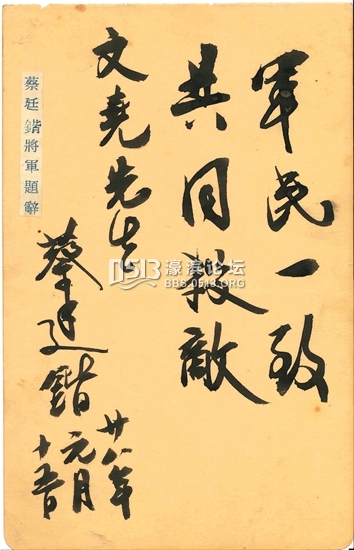 軍民一致
共同殺敵
文堯先生
蔡廷鍇
廿八年
元月
十五日
蔡廷鍇將軍題辭
0513 濠滨论坛
BBS.0513.ORG